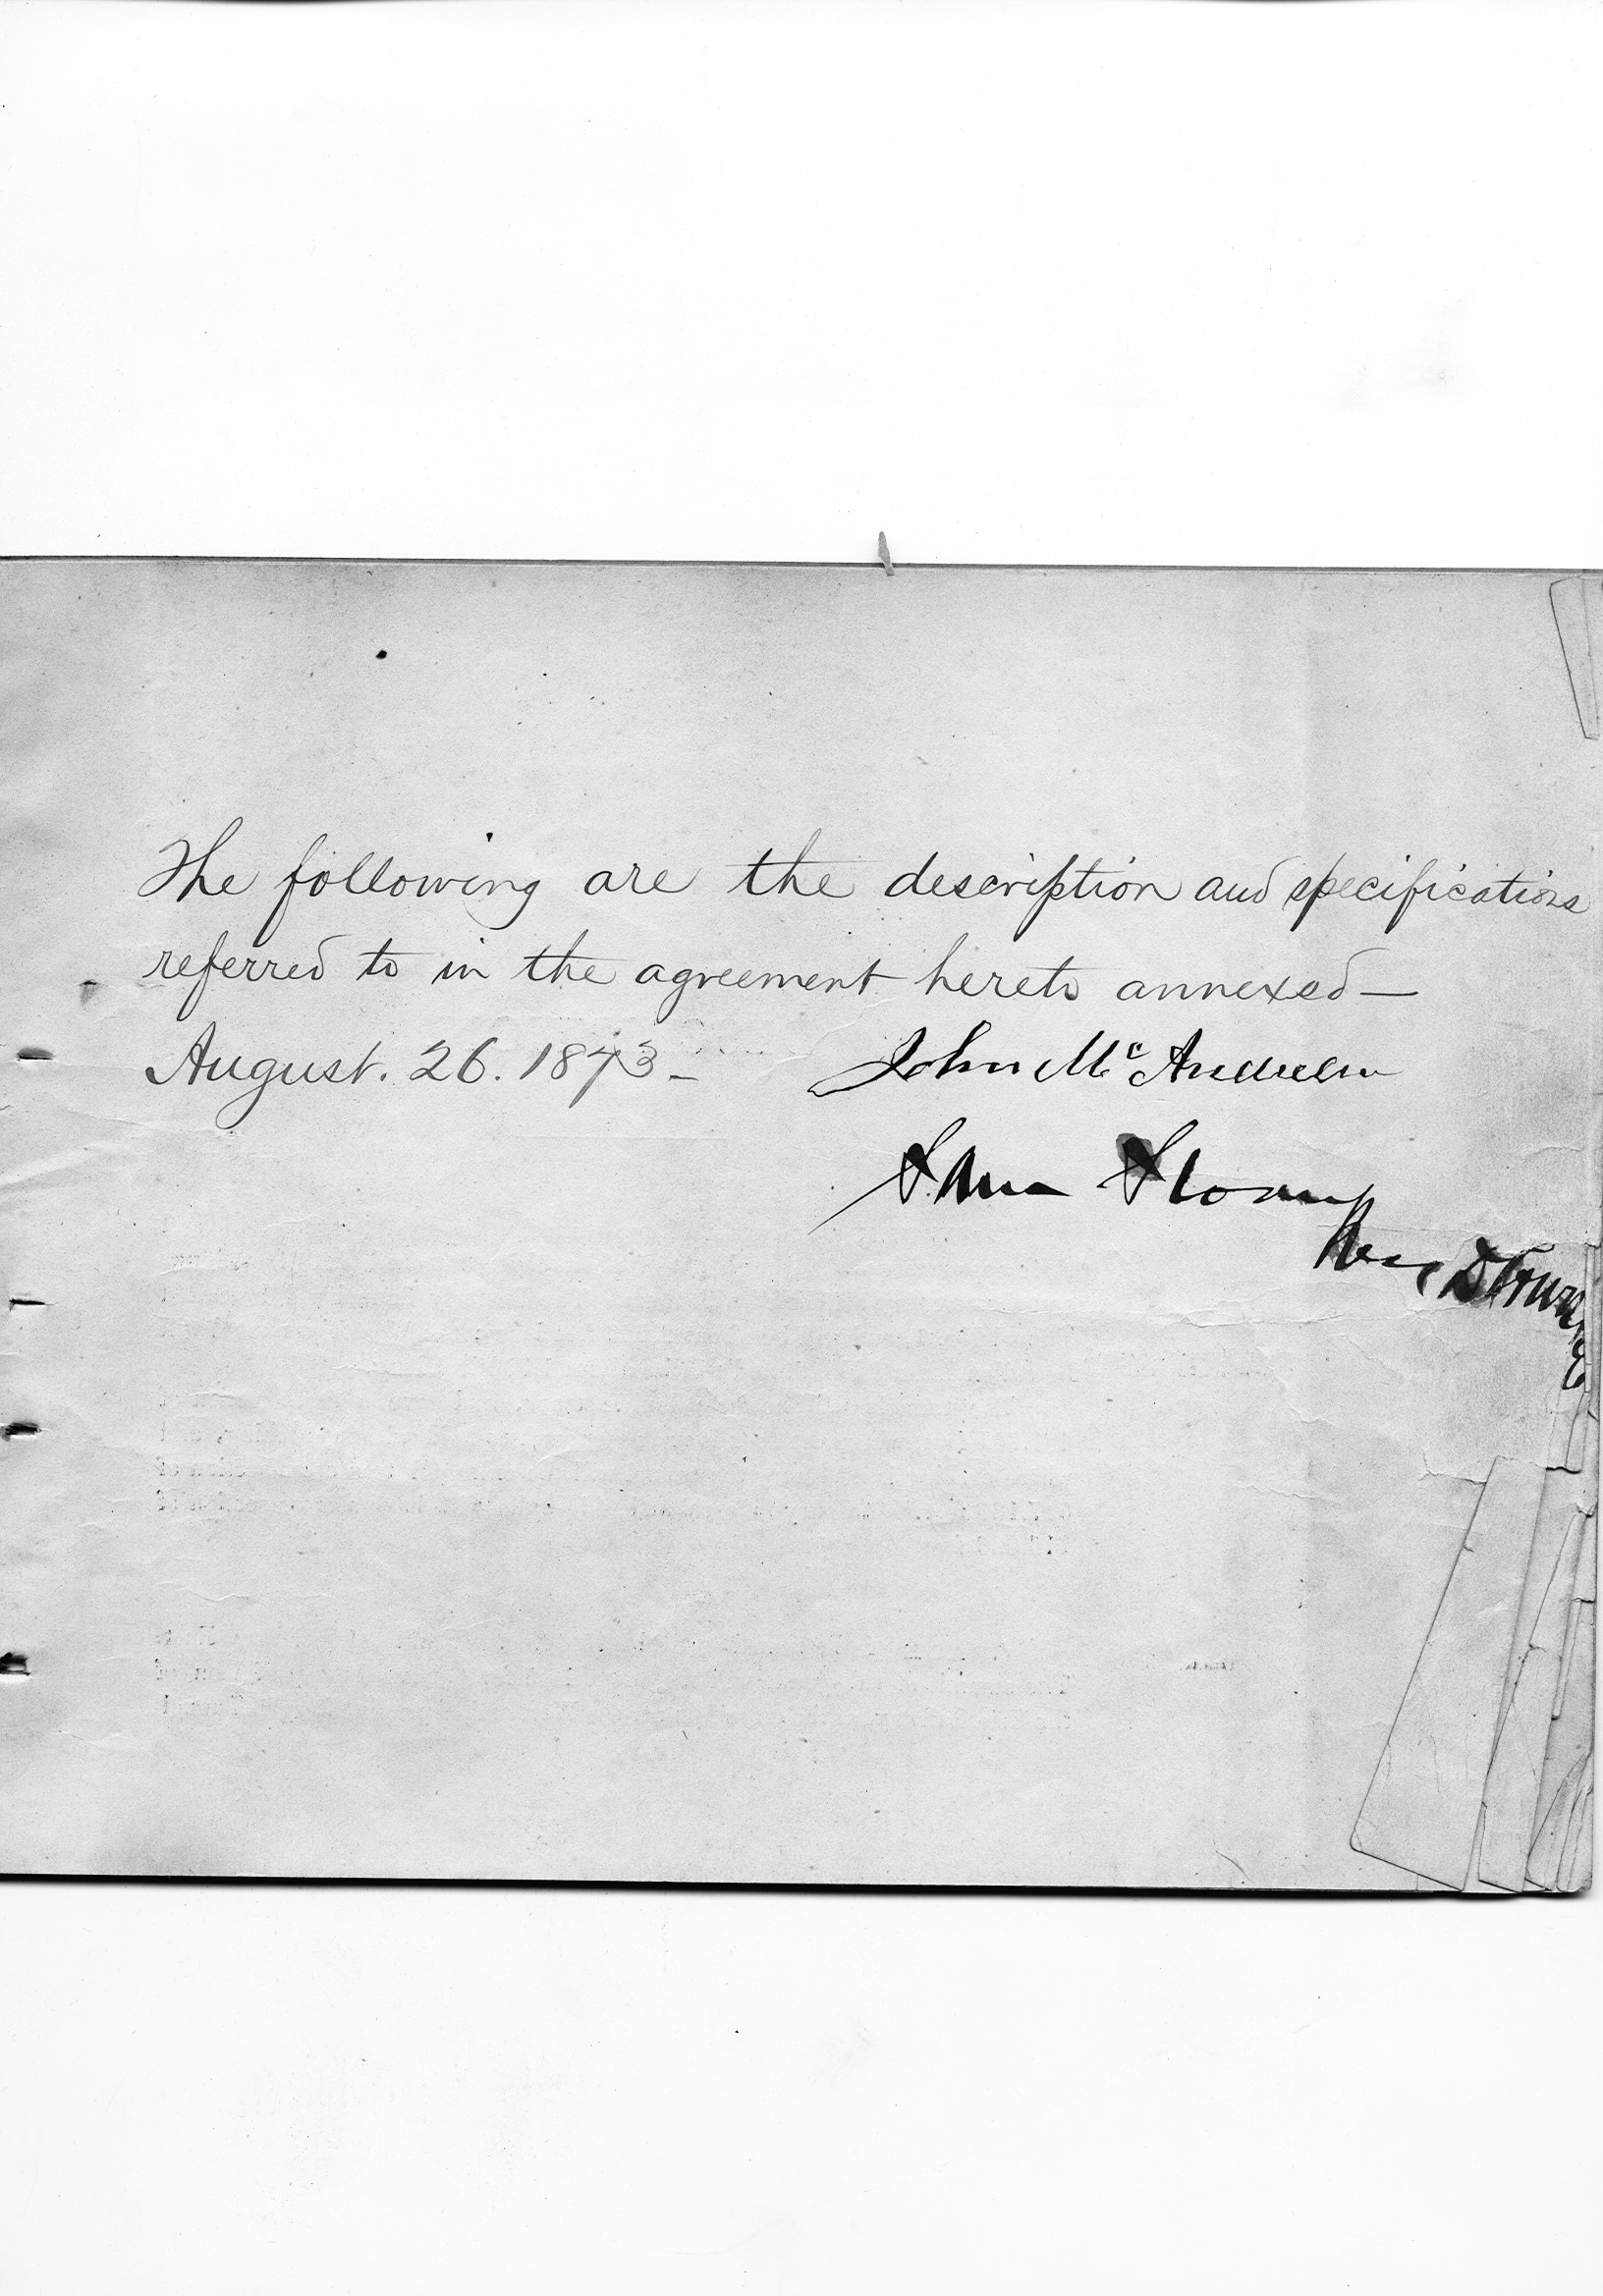 The following are the description and specifications
referred to in the agreement hereto annexed—
August. 26. 1873— John Mc Andrew